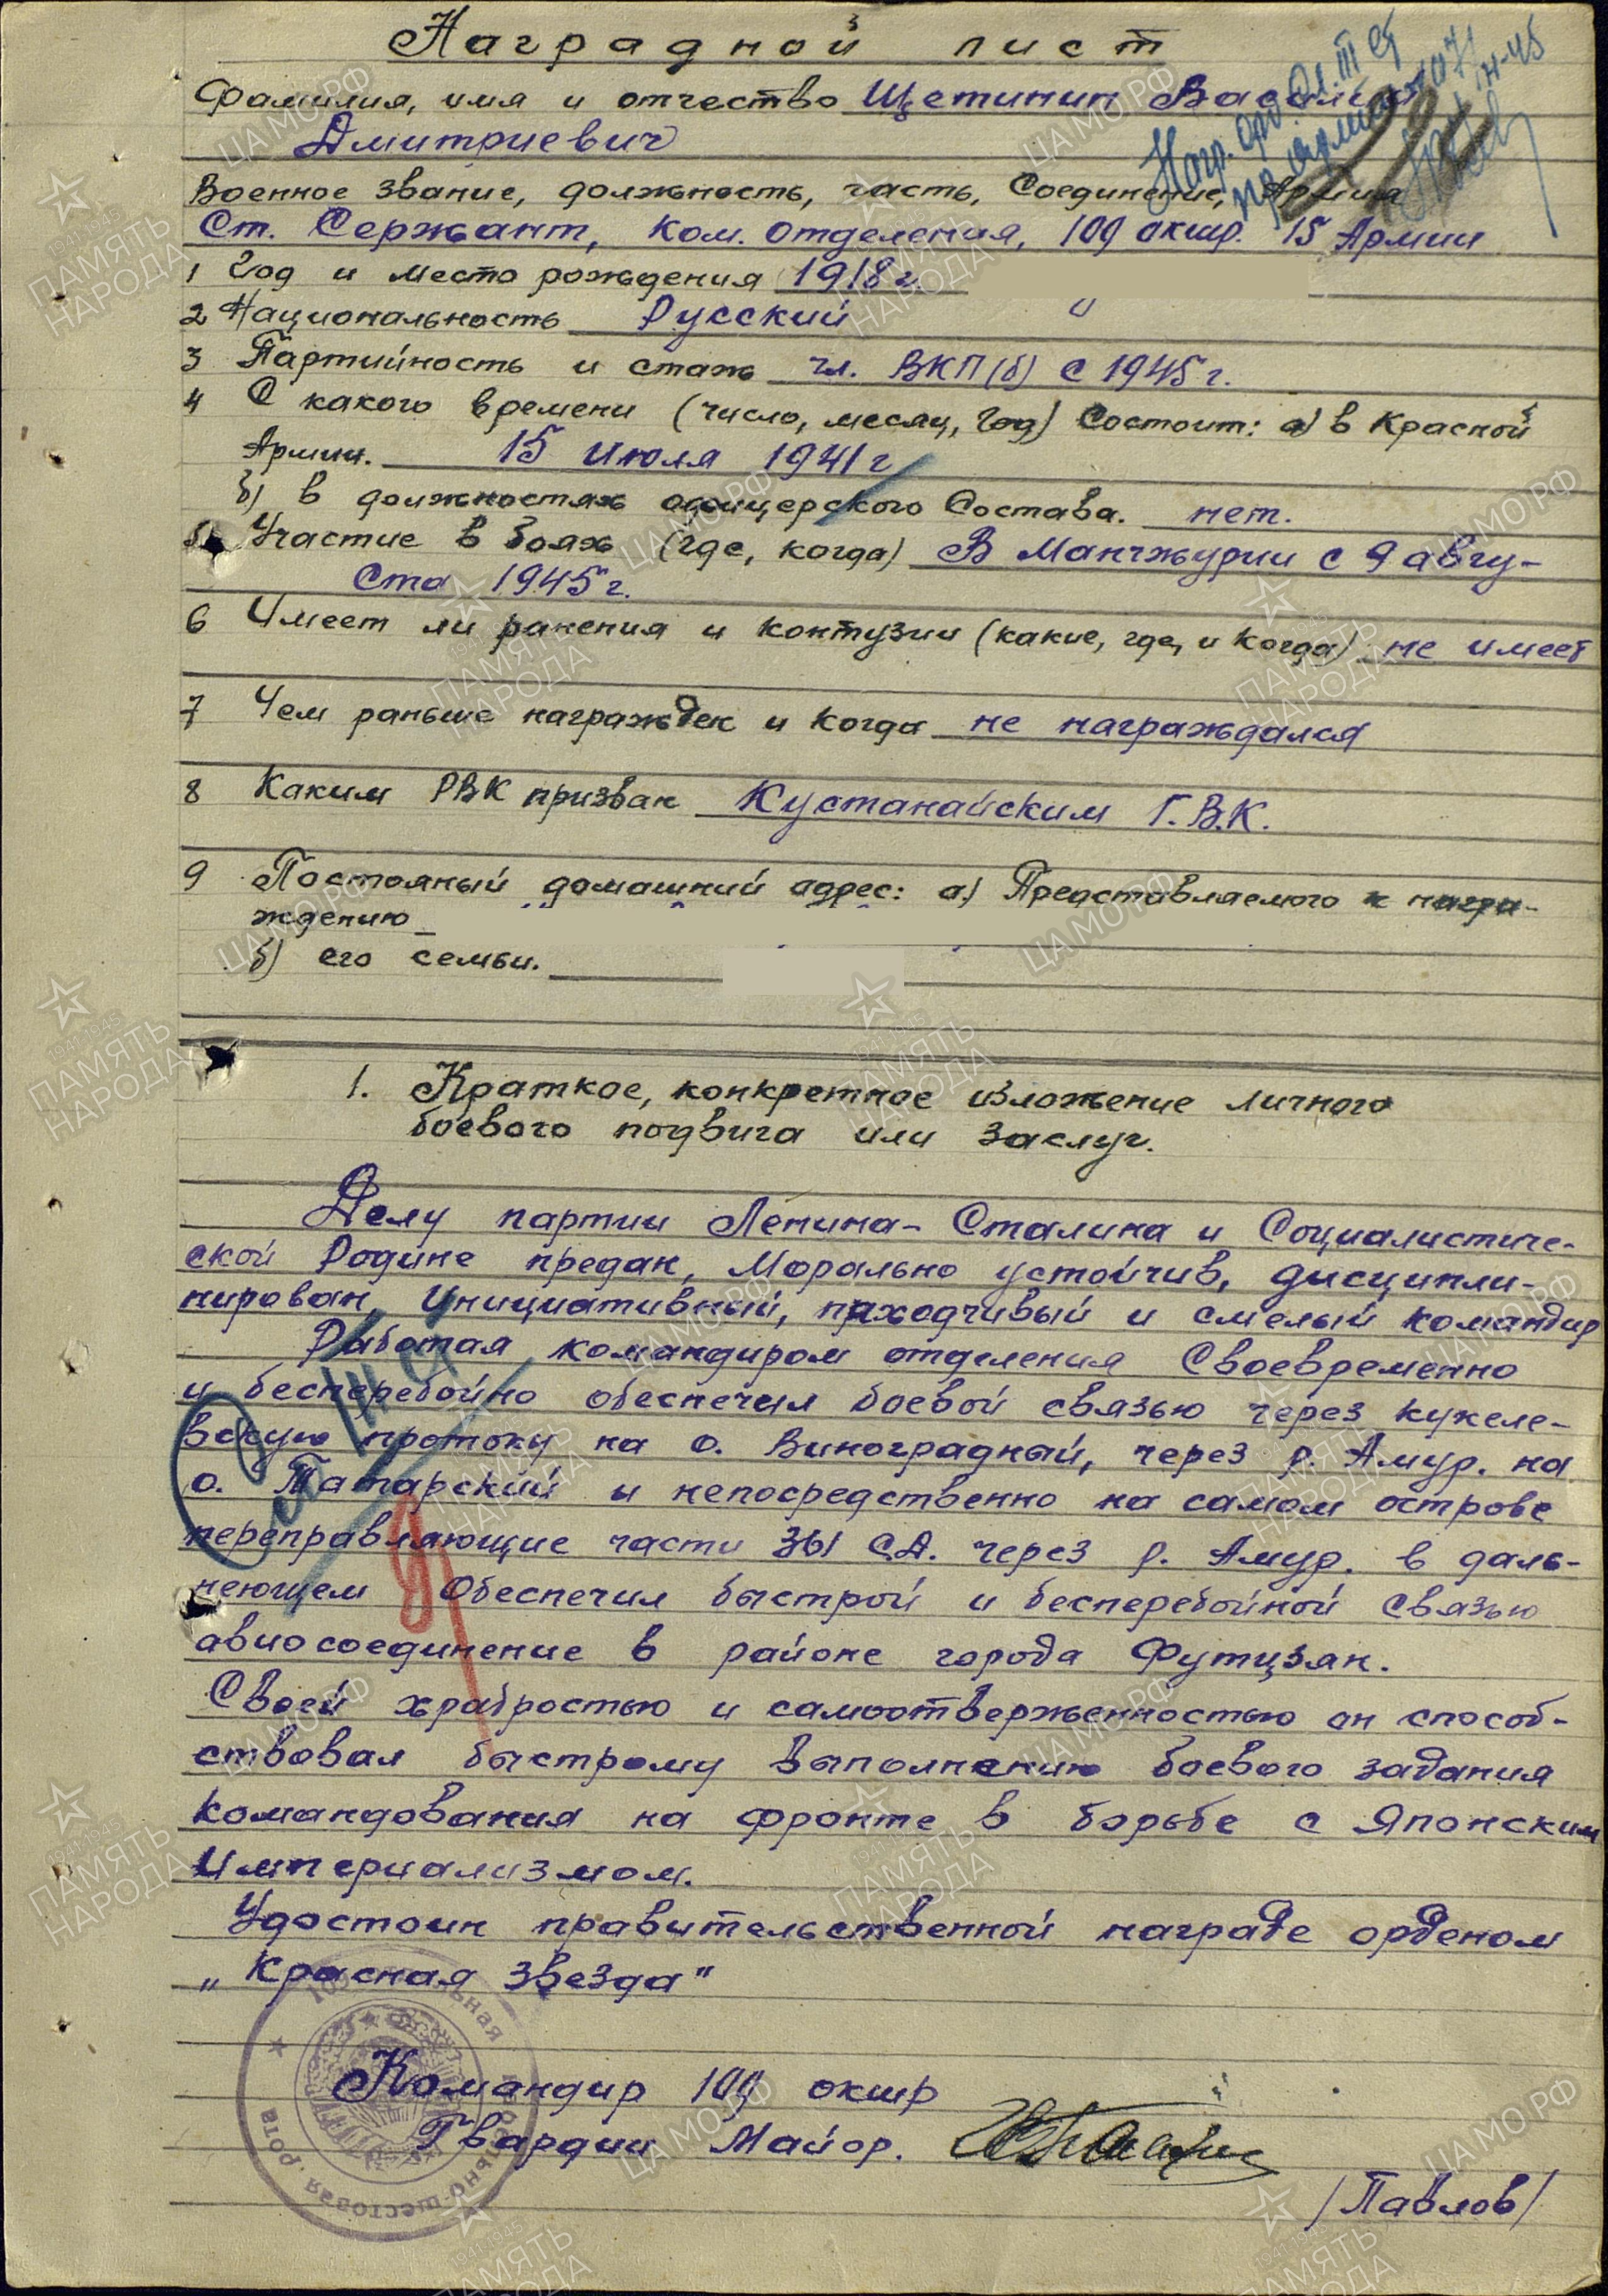 Наградной лист
Фамилия, имя и отчество Щетинин Василий
Дмитриевич
Нагр. орд. Сл. III ст
Военное звание, должность, часть, Соединение, Армия
Ст. Сержант, Ком. отделения, 109 окшр. 15 Армии
1 Год и место рождения 1918 г.
2 Национальность Русский
3 Партийность и стаж чл. ВКП(б) с 1945 г.
4 С какого времени (число, месяц, год) Состоит: а) в Красной
Армии. 15 июля 1941 г
б) в должностях офицерского Состава. нет.
5 Участие в боях (где, когда) В Манчжурии с 9 авгу-
ста 1945 г.
6 Имеет ли ранения и контузии (какие, где, и когда) не имеет
7 Чем раньше награжден и когда не награждался
8 Каким РВК призван Кустанайским Г.В.К.
9 Постояный домашний адрес: а) Представляемого к награ-
ждению
б) его семьи.
1. Краткое, конкретное изложение личного
боевого подвига или заслуг.
Делу партии Ленина-Сталина и Социалистиче-
ской Родине предан, Морально устойчив, дисципли-
нирован, Инициативный, находчивый и смелый командир
Работая командиром отделения Своевременно
и бесперебойно обеспечил боевой связью через кукеле-
вскую протоку на о. Виноградный, через р. Амур. на
о. Татарский и непосредственно на самом острове
переправляющие части 361 СД. через р. Амур. в даль-
неющем Обеспечил быстрой и бесперебойной Связью
авиосоединение в районе города Футцзян.
Своей храбростью и самоотверженностью он способ-
ствовал быстрому выполнению боевого задания
командования на фронте в борьбе с Японским
Империализмом.
Удостоин правительственной награде орденом
„Красная звезда"
Командир 109 окшр
Гвардии Майор.
/Павлов/